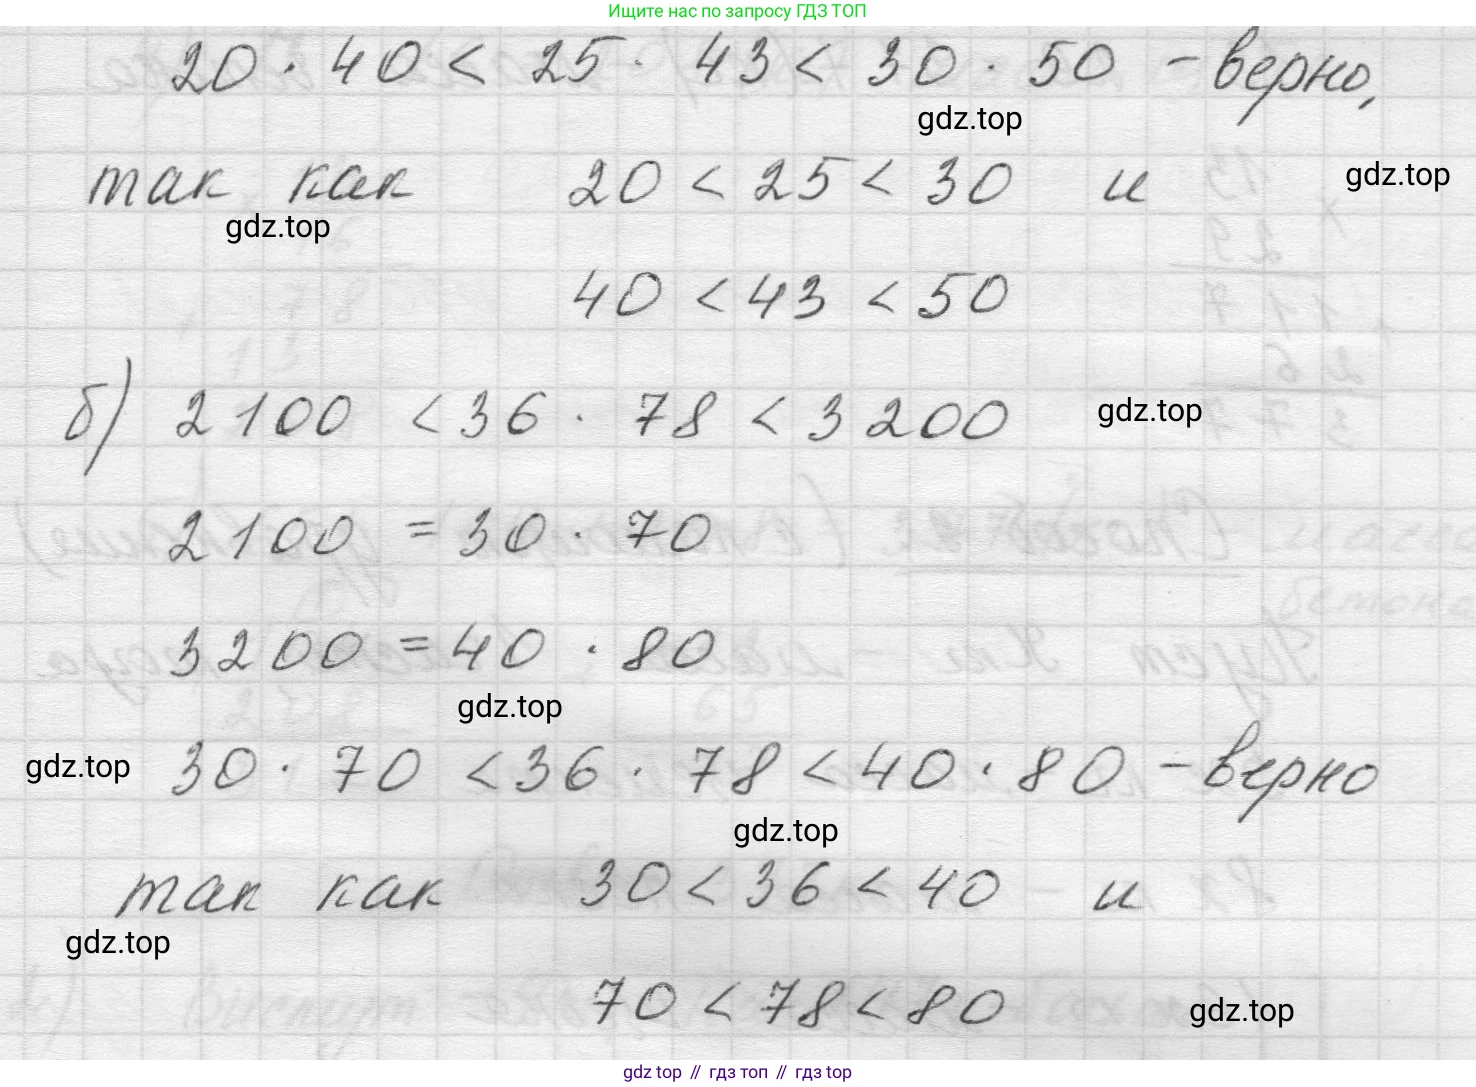 Ищите нас по запросу ГДЗ ТОП
20 · 40 < 25 · 43 < 30 · 50 - верно,
gdz.top
так как 20 < 25 < 30 и
gdz.top
gdz.top
40 < 43 < 50
б) 2100 < 36 · 78 < 3200
gdz.top
2100 = 30 · 70
3200 = 40 · 80
gdz.top
gdz.top
30 · 70 < 36 · 78 < 40 · 80 - верно
gdz.top
так как 30 < 36 < 40 и
gdz.top
70 < 78 < 80
gdz.top
gdz top // гдз топ // гдз top